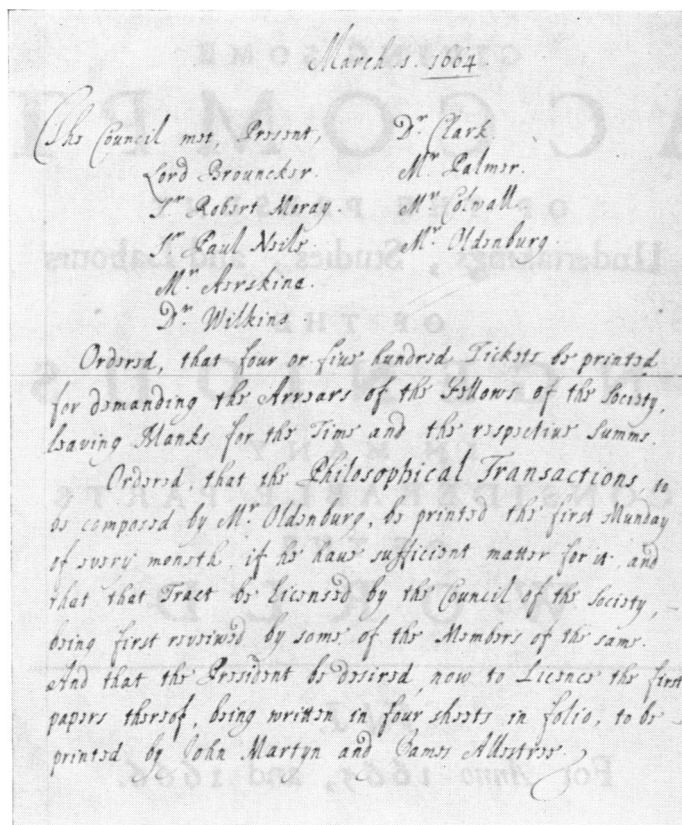 March 1. 1664
The Council met, Present,
Lord Brouncker.
Sr Robert Moray.
Sr Paul Neile.
Mr Aerskine.
Dr Wilkins.
Dr Clark.
Mr Palmer.
Mr Colwall.
Mr Oldenburg.
Ordered, that four or five hundred Tickets be printed
for demanding the Arrears of the Fellows of the Society,
leaving blanks for the Time and the respective summs.
Ordered, that the Philosophical Transactions, to
be composed by Mr Oldenburg, be printed the first Munday
of every moneth, if he have sufficient matter for it, and
that that Tract be licensed by the Council of the Society, –
being first reveiwed by some of the Members of the same.
And that the President be desired, now to Licence the first
papers thereof, being written in four sheets in folio, to be
printed by John Martyn and James Allestree.